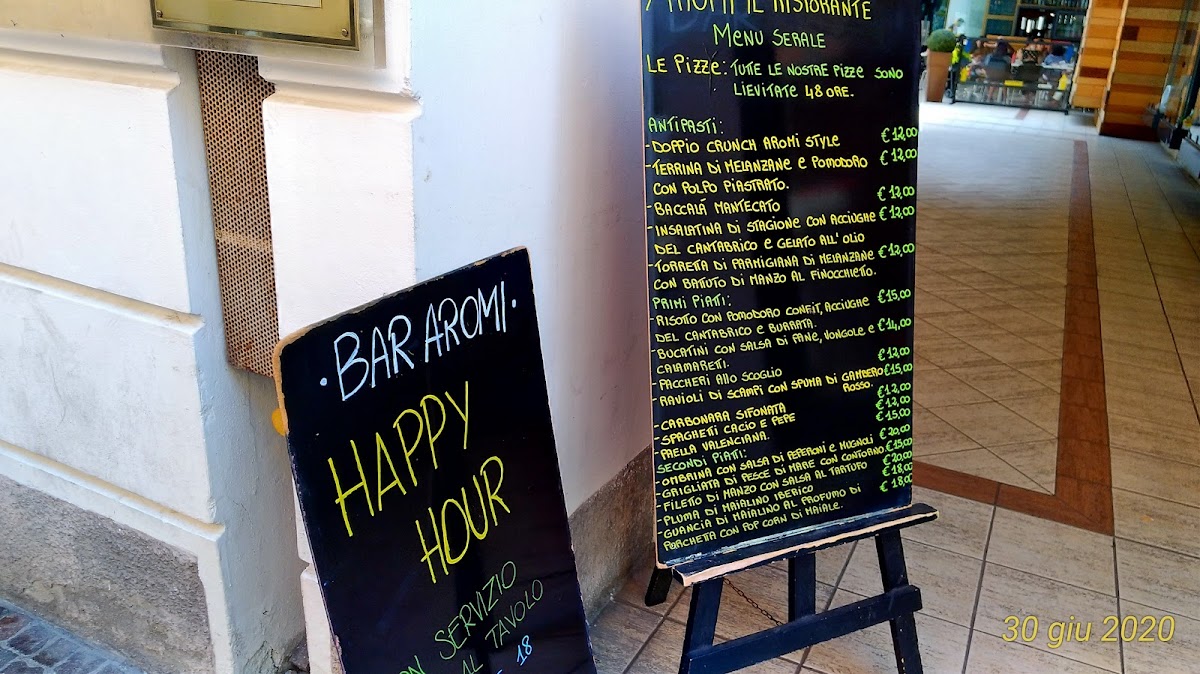 AROMI IL RISTORANTE
MENU SERALE
LE PIZZE: TUTTE LE NOSTRE PIZZE SONO
LIEVITATE 48 ORE.
ANTIPASTI:
-DOPPIO CRUNCH AROMI STYLE €12,00
-TERRINA DI MELANZANE E POMODORO €12,00
CON POLPO PIASTRATO.
-BACCALÁ MANTECATO €12,00
-INSALATINA DI STAGIONE CON ACCIUGHE €12,00
DEL CANTABRICO E GELATO ALL'OLIO
-TORRETTA DI PARMIGIANA DI MELANZANE €12,00
CON BATTUTO DI MANZO AL FINOCCHIETTO.
PRIMI PIATI:
-RISOTTO CON POMODORO CONFIT, ACCIUGHE €15,00
DEL CANTABRICO E BURRATA.
-BUCATINI CON SALSA DI PANE, VONGOLE E €14,00
CALAMARETI.
-PACCHERI ALLO SCOGLIO €12,00
-RAVIOLI DI SCAMPI CON SPUMA DI GAMBERO €15,00
ROSSO.
-CARBONARA SIFONATA €12,00
-SPAGHETTI CACIO E PEPE €12,00
-PAELLA VALENCIANA. €15,00
SECONDI PIATI:
-OMBRINA CON SALSA DI PEPERONI E MUGNOLI €20,00
-GRIGLIATA DI PESCE DI MARE CON CONTORNO. €15,00
-FILETO DI MANZO CON SALSA AL TARTUFO €20,00
-PLUMA DI MAIALINO IBERICO €18,00
-GUANCIA DI MAIALINO AL PROFUMO DI €18,00
PORCHETTA CON POP CORN DI MAIALE.
·BAR AROMI·
HAPPY
HOUR
SERVIZIO
AL TAVOLO
18
30 giu 2020